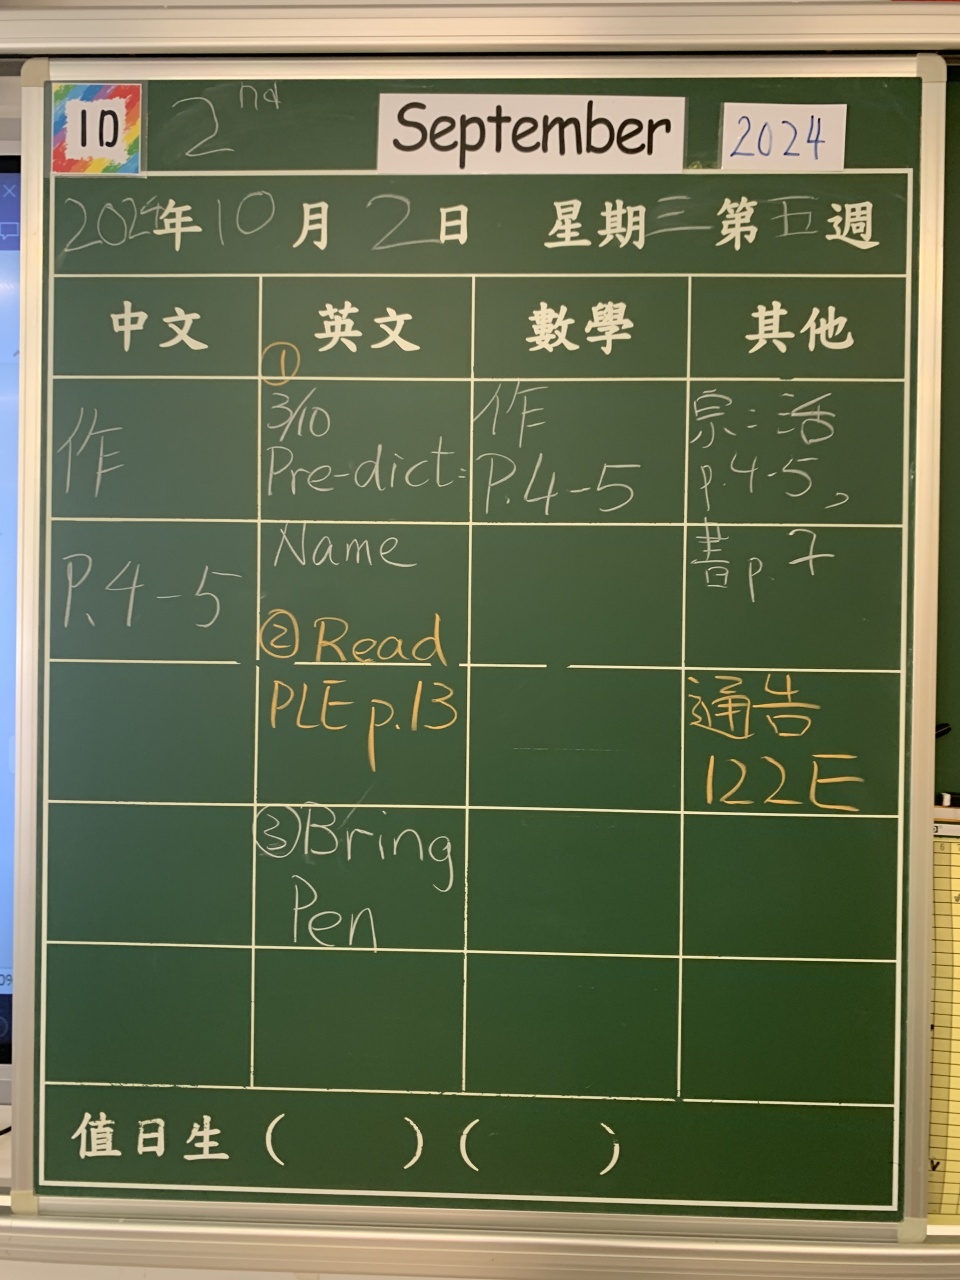 1D 2nd September 2024
2024年10月2日 星期三 第五週
中文 英文 數學 其他
作
P.4-5
① 3/10
Pre-dict:
Name
② Read
PLE p.13
③ Bring
Pen
作
P.4-5
宗:活
p.4-5,
書p.7
通告
122E
值日生 ( ) ( )